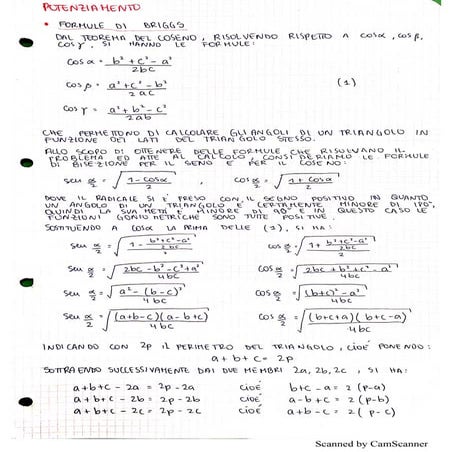 POTENZIAMENTO
• FORMULE DI BRIGGS
DAL TEOREMA DEL COSENO, RISOLVENDO RISPETTO A cos α, cos β,
cos γ, SI HANNO LE FORMULE:
cos α = (b² + c² - a²) / 2bc
cos β = (a² + c² - b²) / 2ac (1)
cos γ = (a² + b² - c²) / 2ab
CHE PERMETTONO DI CALCOLARE GLI ANGOLI DI UN TRIANGOLO IN
FUNZIONE DEI LATI DEL TRIANGOLO STESSO.
ALLO SCOPO DI OTTENERE DELLE FORMULE CHE RISOLVANO IL
PROBLEMA ED ATTE AL CALCOLO, CONSIDERIAMO LE FORMULE
DI BISEZIONE PER IL SENO E PER IL COSENO:
sen α/2 = √((1 - cos α) / 2) , cos α/2 = √((1 + cos α) / 2)
DOVE IL RADICALE SI È PRESO CON IL SEGNO POSITIVO IN QUANTO
UN ANGOLO DI UN TRIANGOLO È CERTAMENTE MINORE DI 180°
QUINDI LA SUA METÀ È MINORE DI 90° E IN QUESTO CASO LE
FUNZIONI GONIOMETRICHE SONO TUTTE POSITIVE.
SOSTITUENDO A cos α LA PRIMA DELLE (1), SI HA:
sen α/2 = √((1 - (b² + c² - a²) / 2bc) / 2) cos α/2 = √((1 + (b² + c² - a²) / 2bc) / 2)
sen α/2 = √((2bc - b² - c² + a²) / 4bc) cos α/2 = √((2bc + b² + c² - a²) / 4bc)
sen α/2 = √((a² - (b - c)²) / 4bc) cos α/2 = √(((b + c)² - a²) / 4bc)
sen α/2 = √((a+b-c)(a-b+c) / 4bc) cos α/2 = √((b+c+a)(b+c-a) / 4bc)
INDICANDO CON 2p IL PERIMETRO DEL TRIANGOLO, CIOÈ PONENDO:
a + b + c = 2p
SOTTRAENDO SUCCESSIVAMENTE DAI DUE MEMBRI 2a, 2b, 2c, SI HA:
a + b + c - 2a = 2p - 2a CIOÈ b + c - a = 2 (p - a)
a + b + c - 2b = 2p - 2b CIOÈ a - b + c = 2 (p - b)
a + b + c - 2c = 2p - 2c CIOÈ a + b - c = 2 (p - c)
Scanned by CamScanner